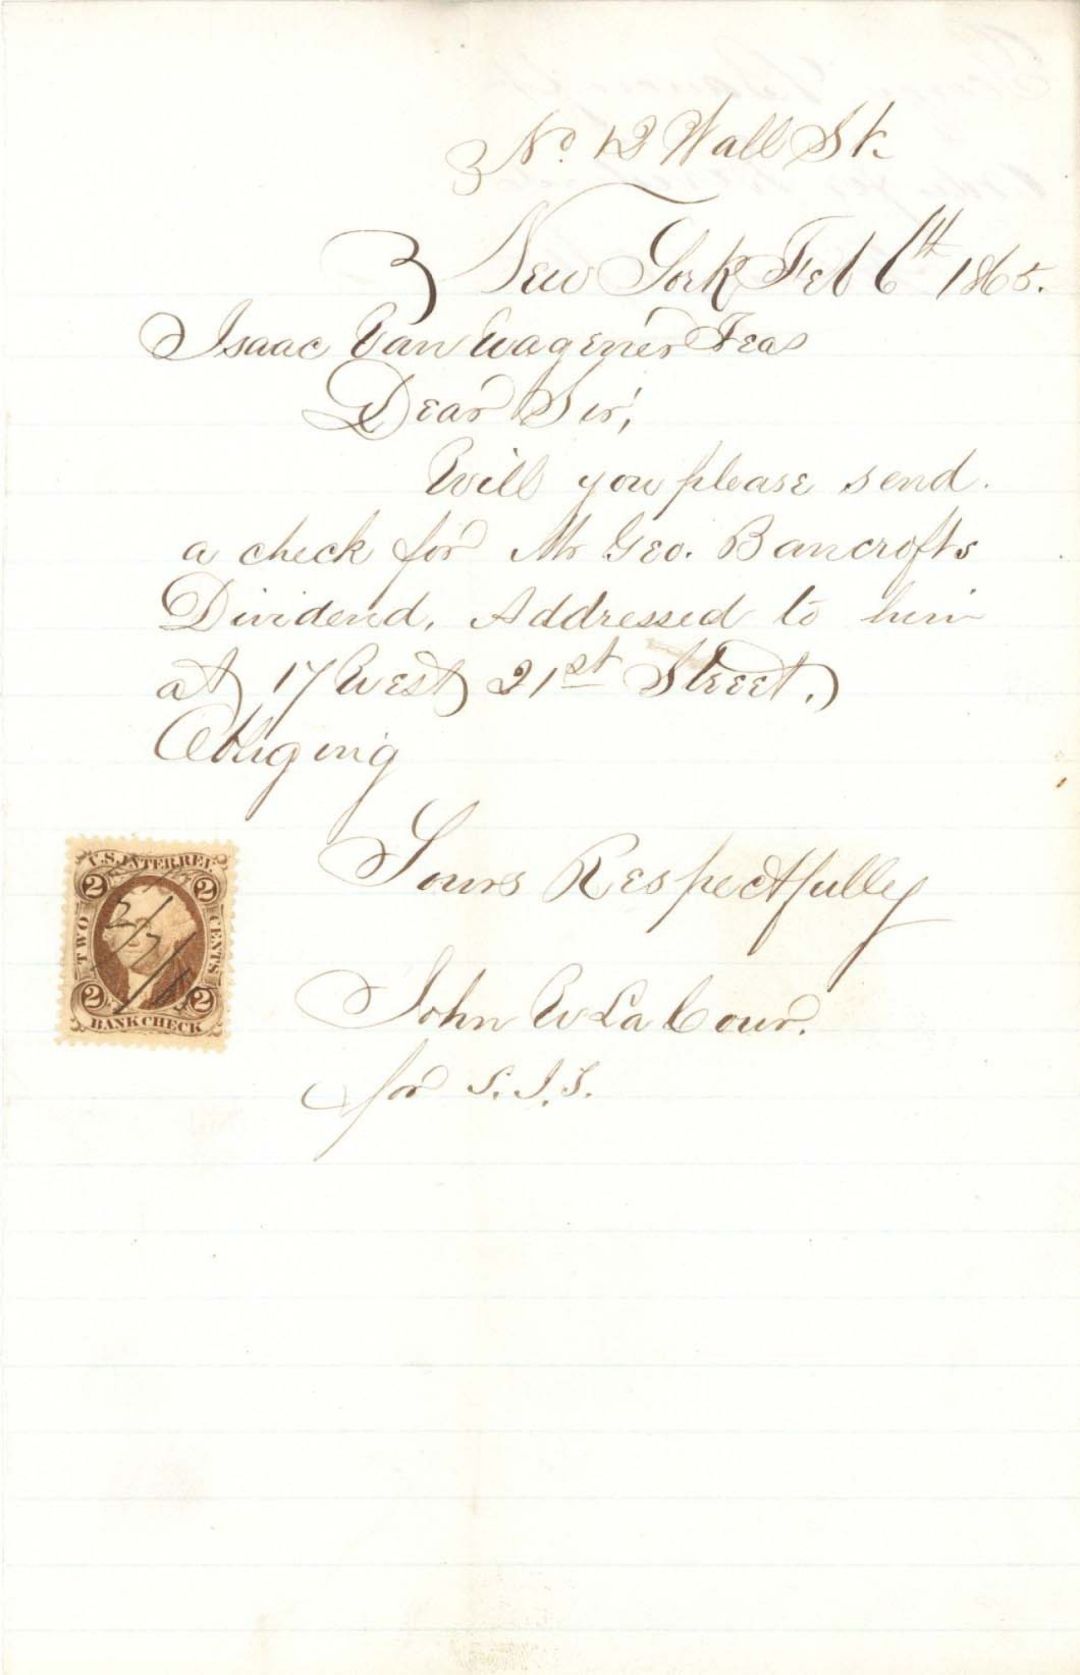 No. 12 Wall St.
New York Feb 6th 1865.
Isaac Van Wagener Treas
Dear Sir;
Will you please send
a check for Mr Geo. Bancrofts
Dividend. Addressed to him
at 17 West 21st Street.
Obliging
Yours Respectfully
John W La Cour.
for S. I. S.
U.S. INTER. REV.
2 2
TWO CENTS
2/7/65
2 2
BANK CHECK